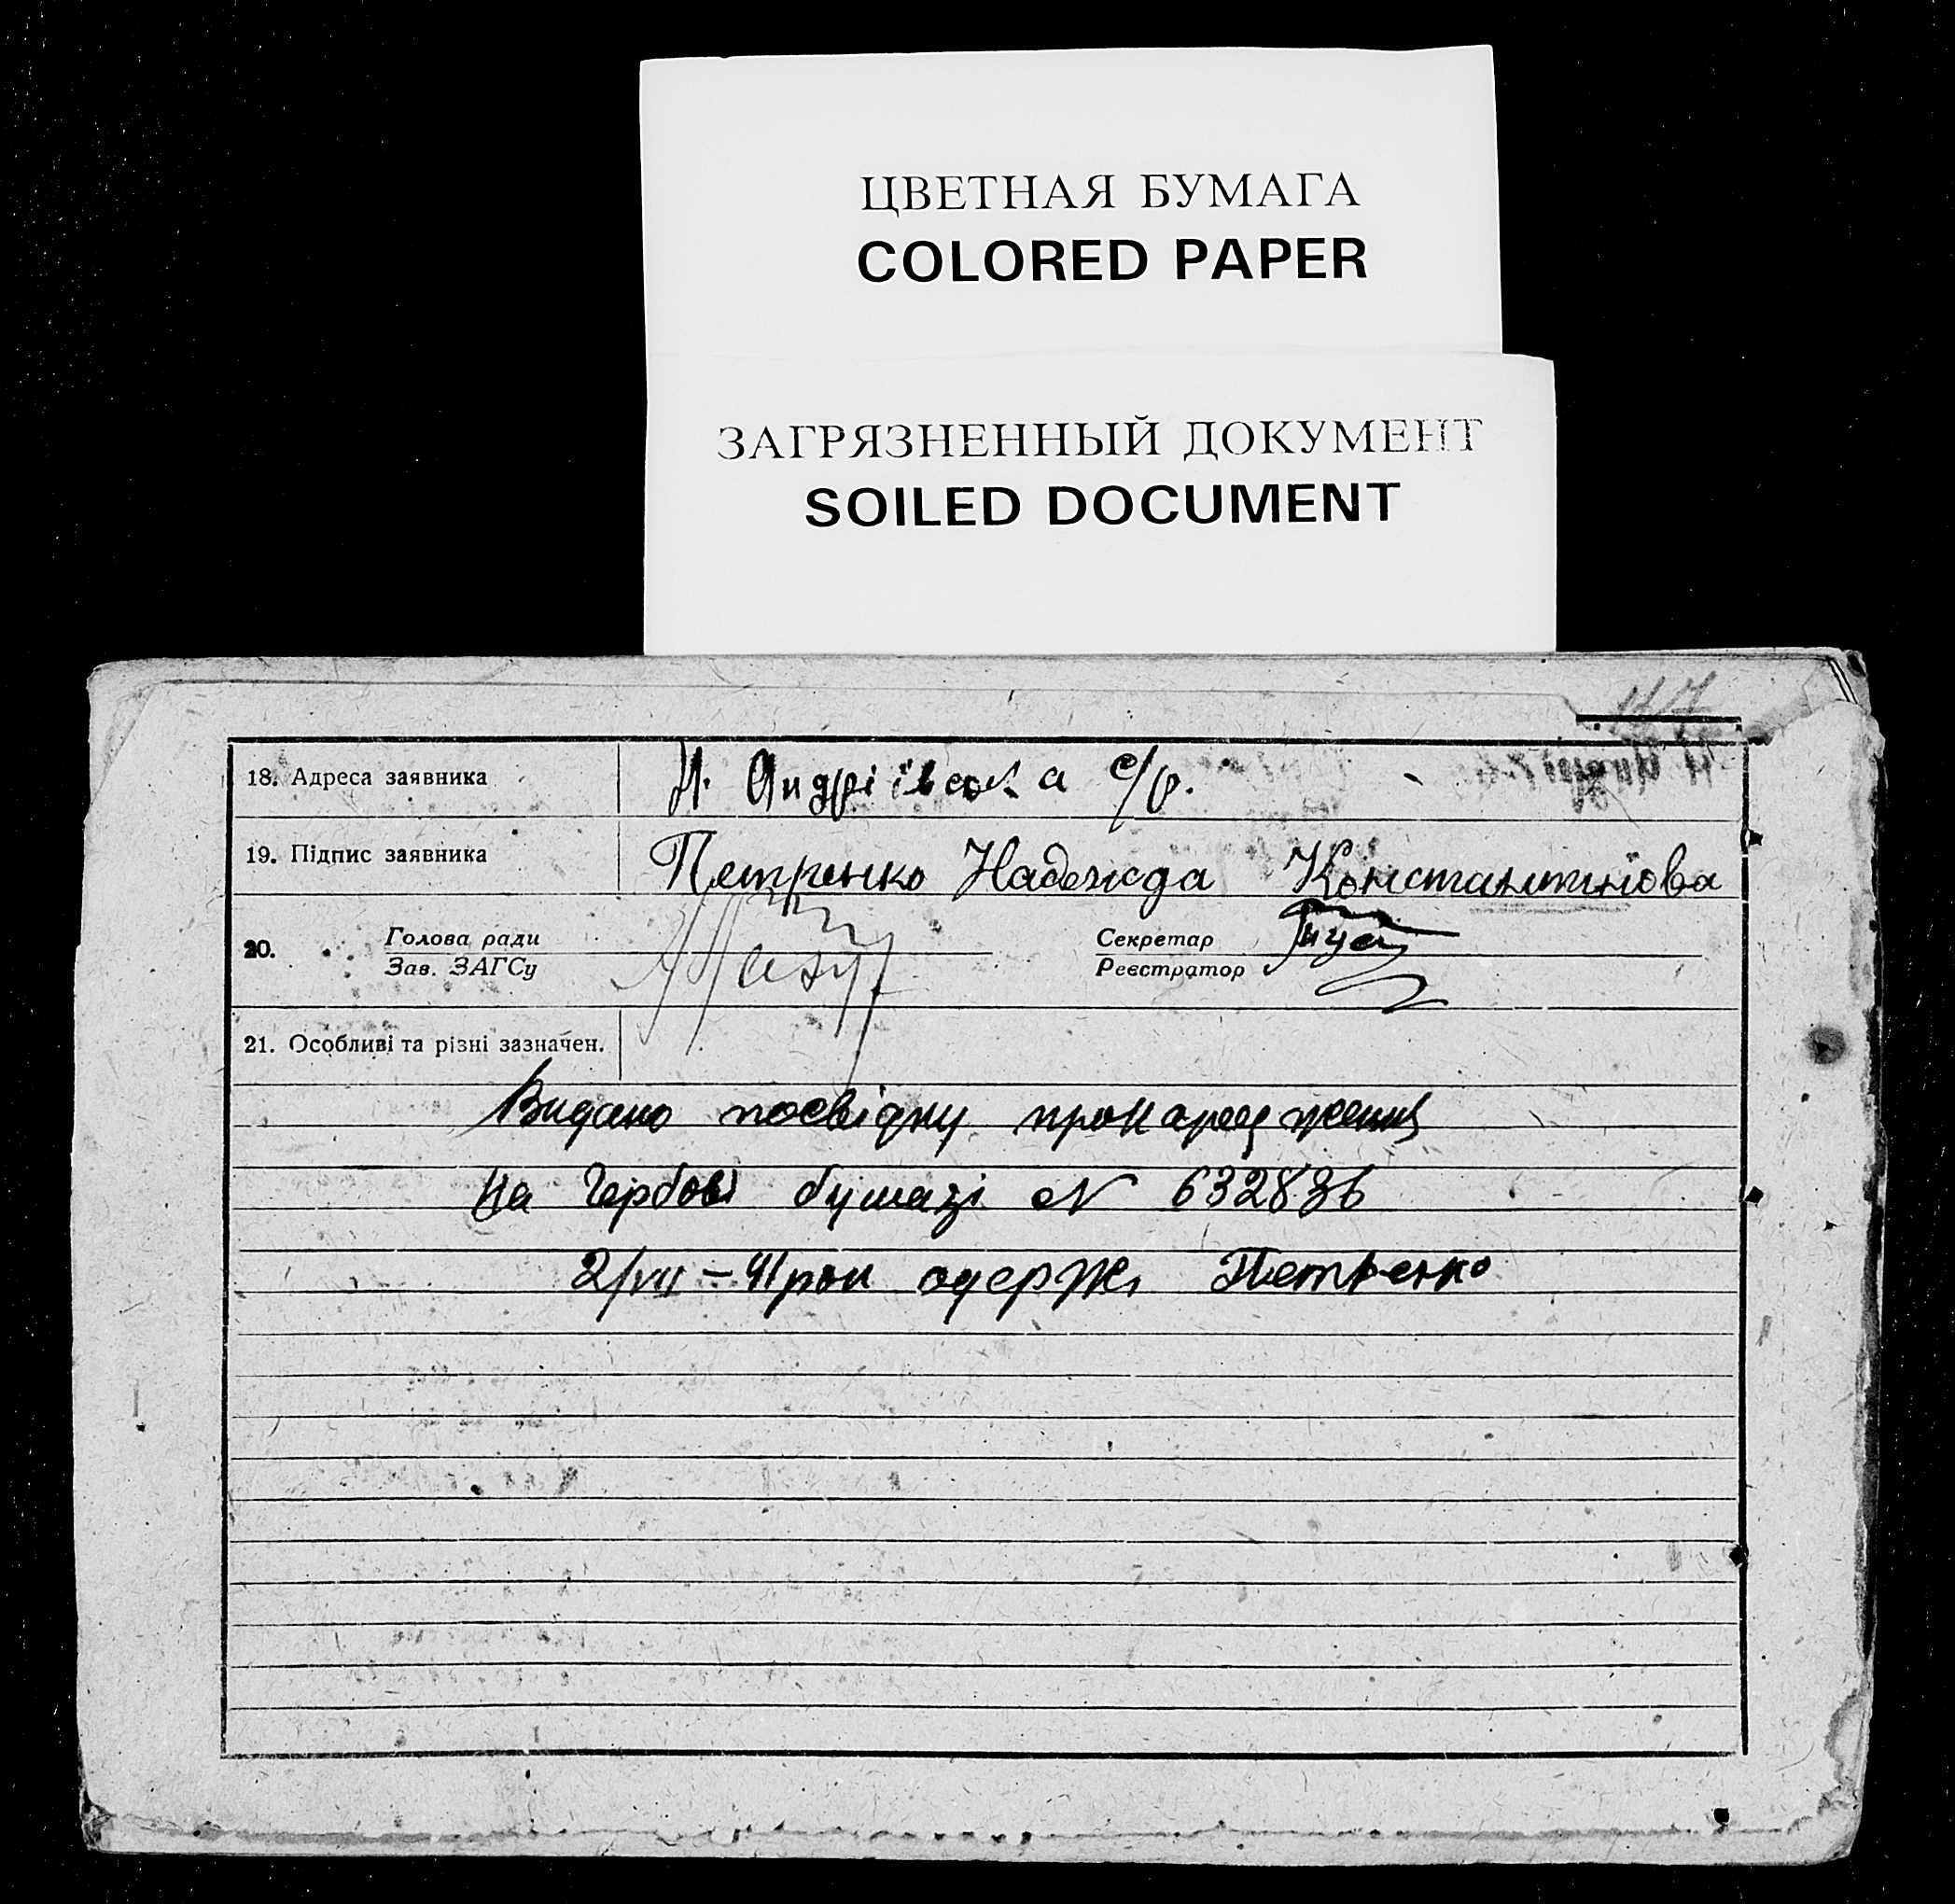 ЦВЕТНАЯ БУМАГА
COLORED PAPER
ЗАГРЯЗНЕННЫЙ ДОКУМЕНТ
SOILED DOCUMENT
18. Адреса заявника Н. Андріївська с/р.
19. Підпис заявника Петренко Надежда Константинова
20. Голова ради Секретар
Зав. ЗАГСу Реєстратор
21. Особливі та різні зазначен.
Видано посвідку про народження
на Гербові бумазі № 632836
2/VII – 41 рок одерж. Петренко